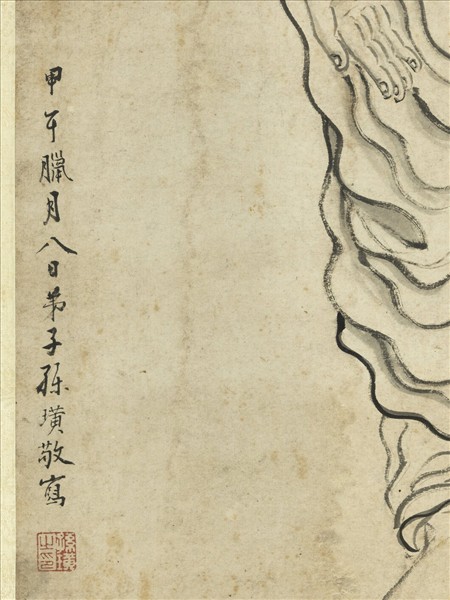 甲午臘月八日弟子孫璜敬寫
孫璜
之印